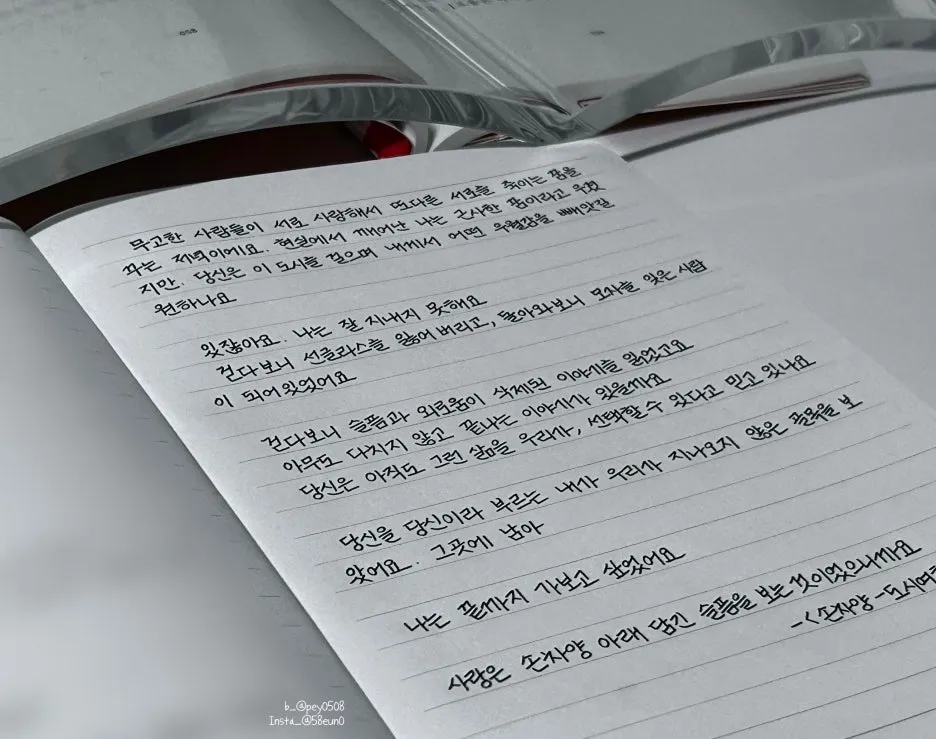 058
무고한 사람들이 서로 사랑해서 또다른 서로를 죽이는 꿈을
꾸는 저녁이에요. 현실에서 깨어난 나는 근사한 꿈이라고 우겼
지만. 당신은 이 도시를 걸으며 내게서 어떤 우월감을 빼앗길
원하나요
있잖아요. 나는 잘 지내지 못해요
걷다보니 선글라스를 잃어버리고, 돌아와보니 모자를 잊은 사람
이 되어있었어요
걷다보니 슬픔과 외로움이 삭제된 이야기를 읽었고요
아무도 다치지 않고 끝나는 이야기가 있을까요
당신은 아직도 그런 삶을 우리가, 선택할 수 있다고 믿고 있나요
당신을 당신이라 부르는 내가 우리가 지나오지 않은 골목을 보
았어요. 그곳에 남아
나는 끝까지 가보고 싶었어요
사랑은 손차양 아래 담긴 슬픔을 보는 것이었으니까요
-<손차양 -도시여
b_@pey0508
Insta_@58eun0